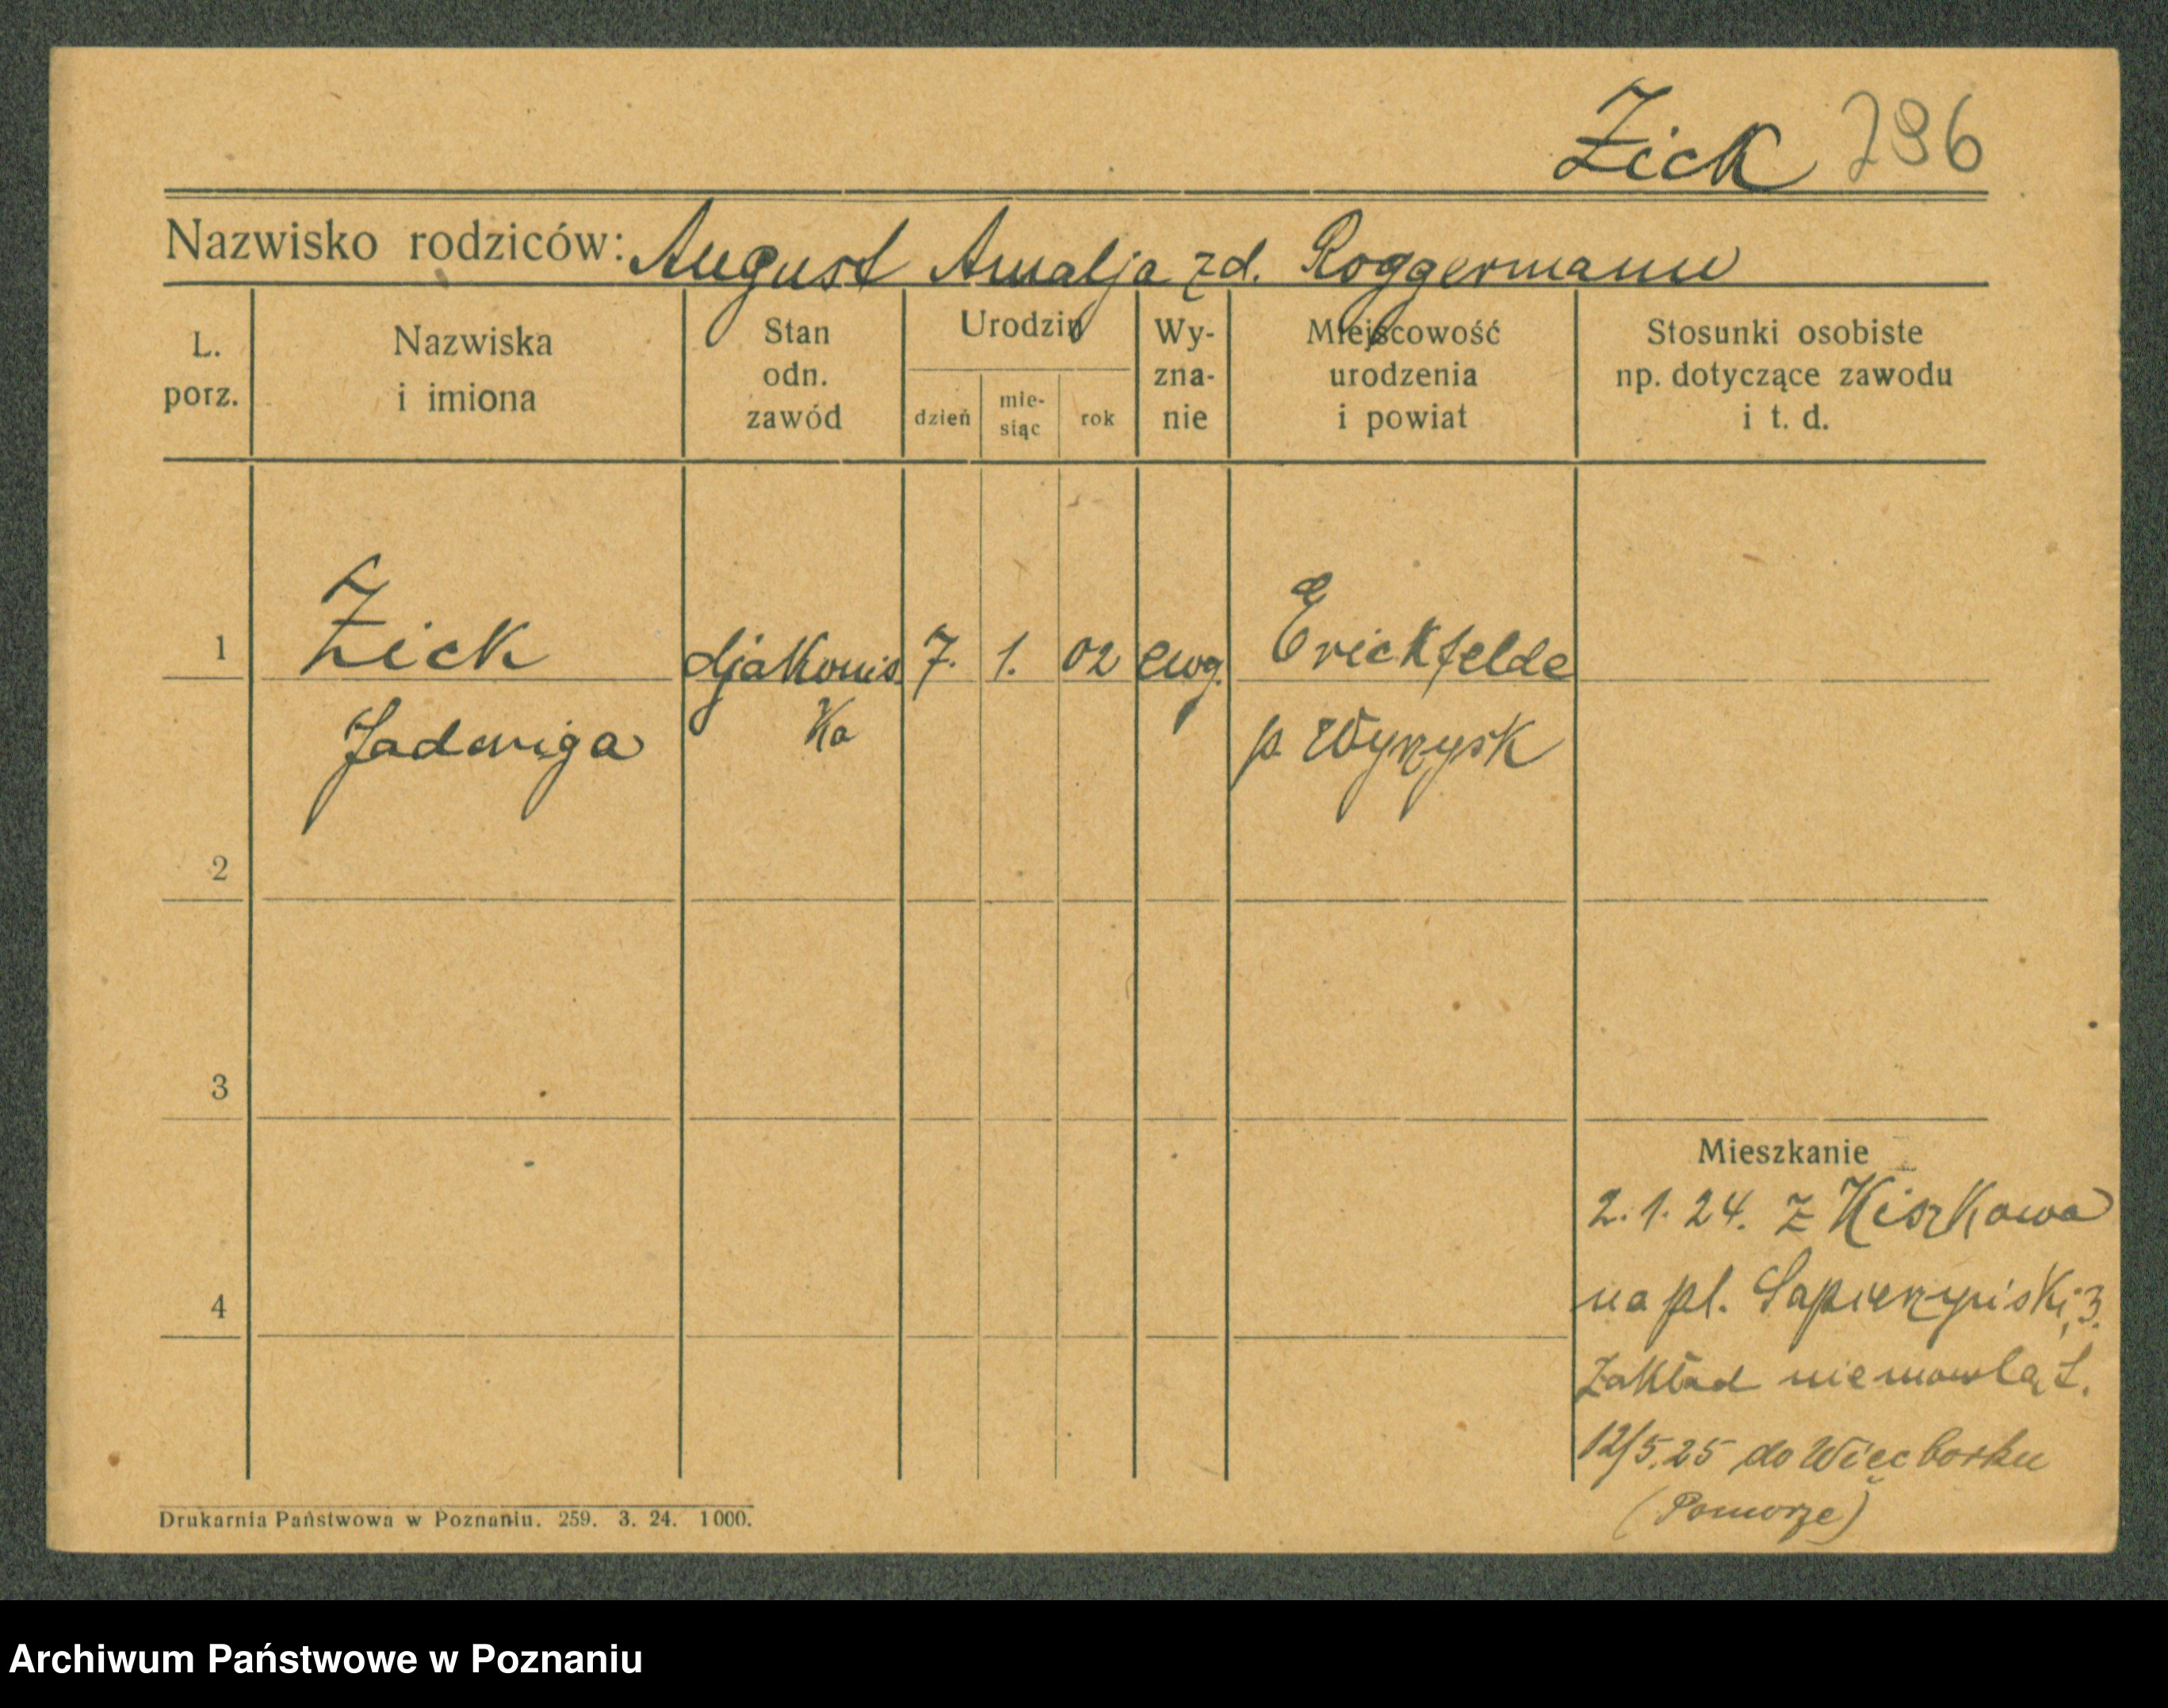 Zick 796
Nazwisko rodziców: August Amalja zd. Roggermann
L. porz.
Nazwiska i imiona
Stan odn. zawód
Urodzin
dzień
mie-siąc
rok
Wy-zna-nie
Miejscowość urodzenia i powiat
Stosunki osobiste np. dotyczące zawodu i t. d.
1 Zick djakonis. 7. 1. 02 ewg. Erickfelde
Jadwiga ka p Wyrzysk
2
3
Mieszkanie
2. 1. 24. z Kiszkowa
na pl. Sapierzyński, 3.
4
Zakład niemowląt.
12/5.25 do Więcborku
(Pomorze)
Drukarnia Państwowa w Poznaniu. 259. 3. 24. 1000.
Archiwum Państwowe w Poznaniu